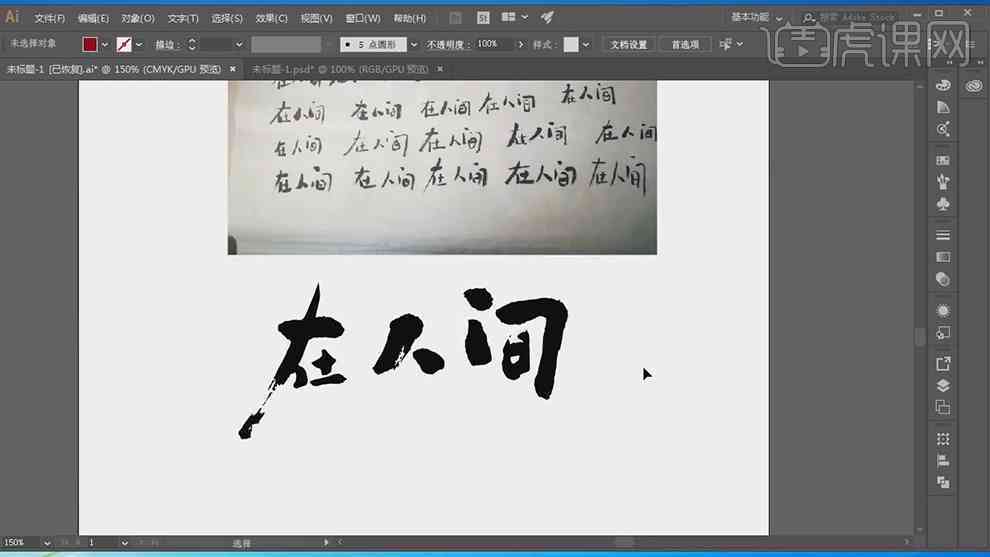 Ai 文件(F) 编辑(E) 对象(O) 文字(T) 选择(S) 效果(C) 视图(V) 窗口(W) 帮助(H) Br St 基本功能 搜索 Adobe Stock
虎课网
未选择对象 描边: 5 点圆形 不透明度: 100% 样式: 文档设置 首选项
未标题-1 [已恢复].ai* @ 150% (CMYK/GPU 预览) × 未标题-1.psd* @ 100% (RGB/GPU 预览) ×
在人间 在人间 在人间 在人间 在人间
在人间 在人间 在人间 在人间 在人间
在人间 在人间 在人间 在人间 在人间
在人间
150% 1 选择